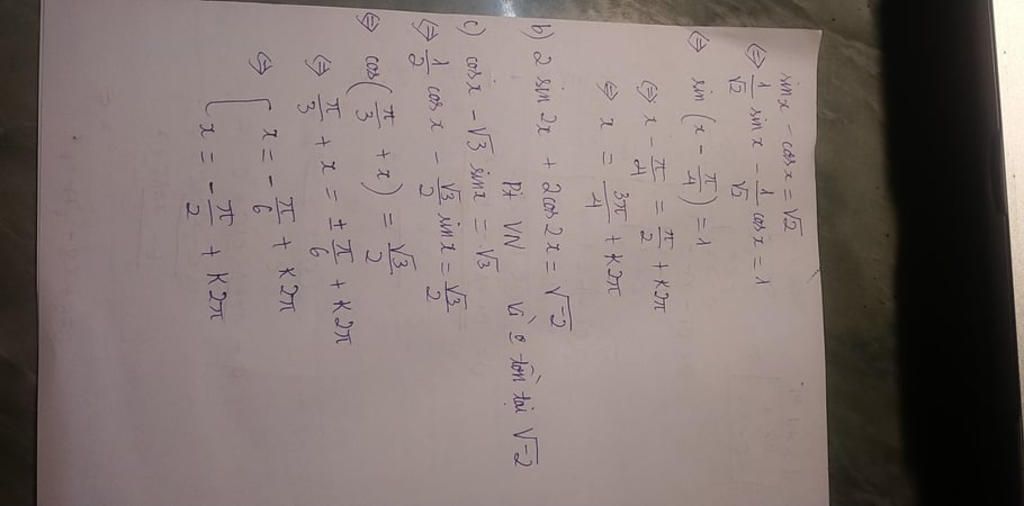 sinx - cosx = √2
⇔ 1/√2 sinx - 1/√2 cosx = 1
⇔ sin (x - π/4) = 1
⇔ x - π/4 = π/2 + K2π
⇔ x = 3π/4 + K2π
b) 2 sin 2x + 2cos 2x = √-2
Pt VN vì o tồn tại √-2
c) cosx - √3 sinx = √3
⇔ 1/2 cos x - √3/2 sinx = √3/2
⇔ cos(π/3 + x) = √3/2
⇔ π/3 + x = ± π/6 + K2π
⇔ [ x = - π/6 + K2π
x = - π/2 + K2π